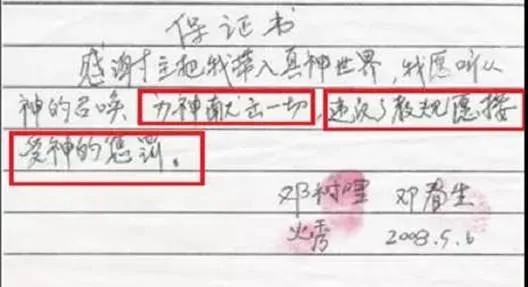 保证书
感谢主把我带入真神世界，我愿听从
神的召唤 为神献出一切，违反了教规愿接
受神的惩罚。
邓树 邓春生
秀 2008.5.6